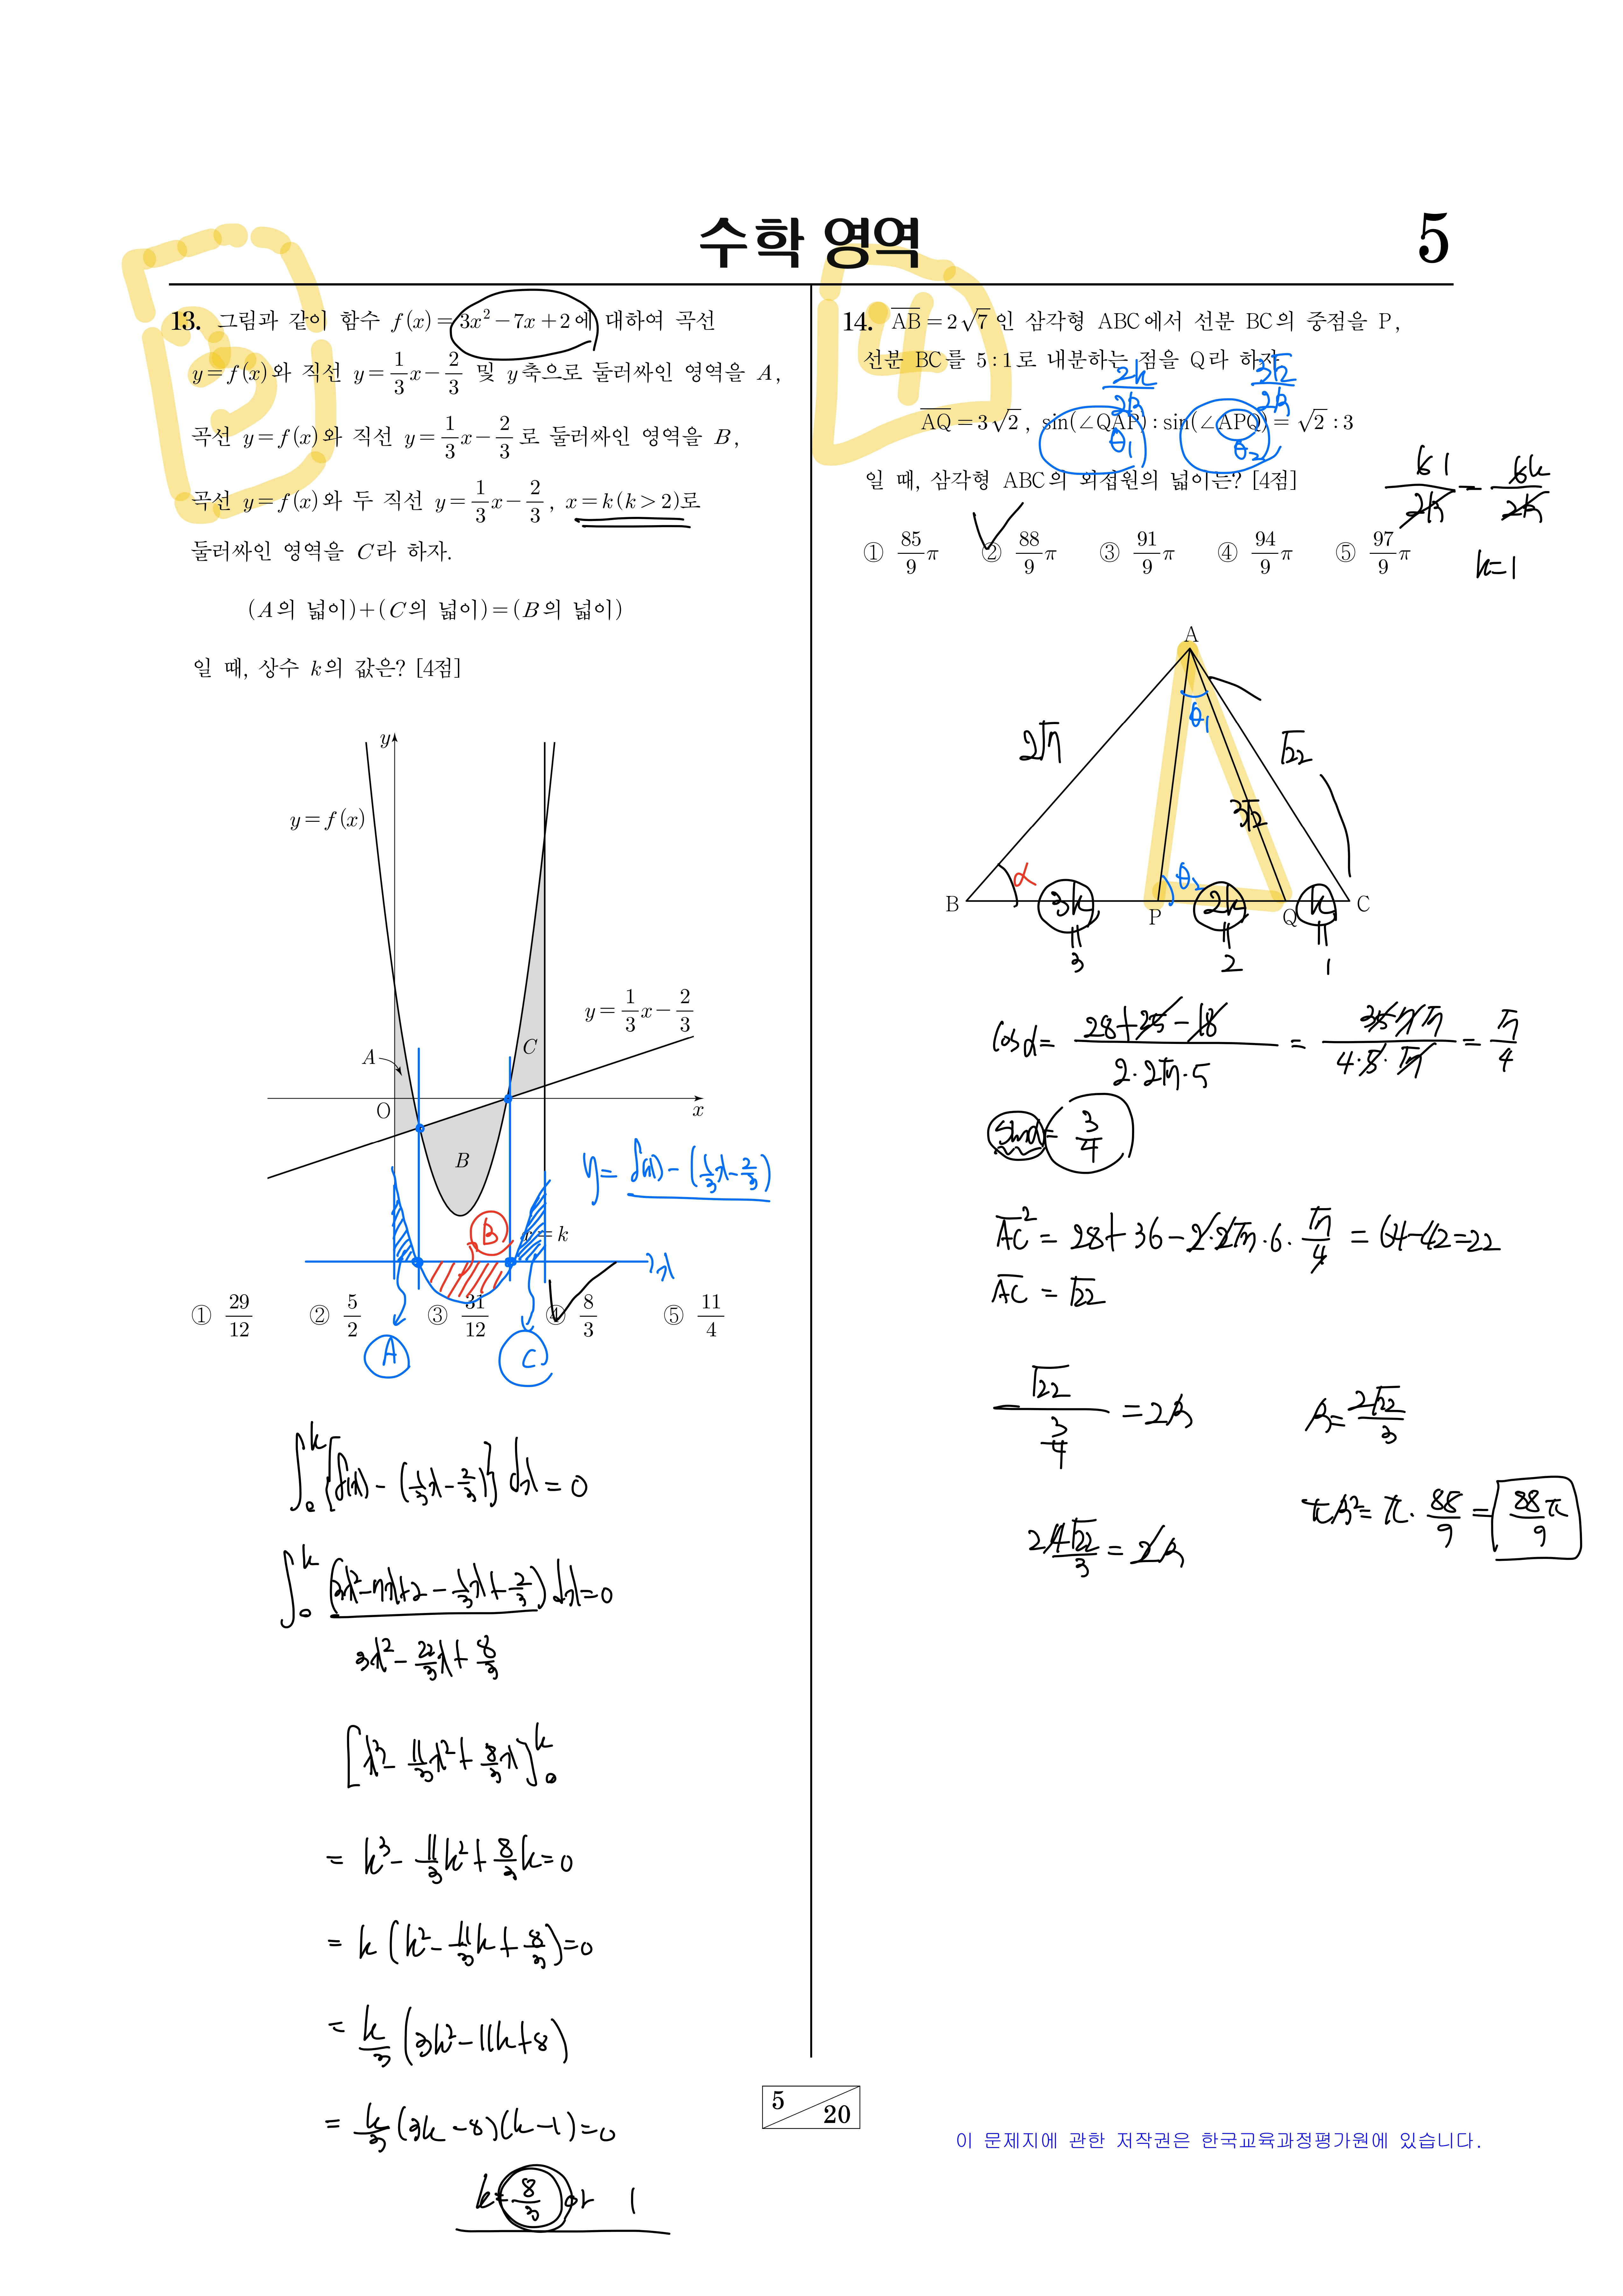 수학 영역
5
13. 그림과 같이 함수 f(x)=3x²-7x+2에 대하여 곡선
y=f(x)와 직선 y=1/3x-2/3 및 y축으로 둘러싸인 영역을 A,
곡선 y=f(x)와 직선 y=1/3x-2/3로 둘러싸인 영역을 B,
곡선 y=f(x)와 두 직선 y=1/3x-2/3, x=k(k>2)로
둘러싸인 영역을 C라 하자.
(A의 넓이)+(C의 넓이)=(B의 넓이)
일 때, 상수 k의 값은? [4점]
y
y=f(x)
y=1/3x-2/3
A
C
O
x
B
y=f(x)-(1/3x-2/3)
B
x=k
x
① 29/12 ② 5/2 ③ 31/12 ④ 8/3 ⑤ 11/4
A
C
∫₀ᵏ{f(x)-(1/3x-2/3)}dx=0
∫₀ᵏ(3x²-7x+2-1/3x+2/3)dx=0
3x²-22/3x+8/3
[x³-11/3x²+8/3x]₀ᵏ
=k³-11/3k²+8/3k=0
=k(k²-11/3k+8/3)=0
=k/3(3k²-11k+8)
=k/3(3k-8)(k-1)=0
k=8/3 or 1
14. AB=2√7인 삼각형 ABC에서 선분 BC의 중점을 P,
선분 BC를 5:1로 내분하는 점을 Q라 하자.
2k/2R 3√2/2R
AQ=3√2, sin(∠QAP):sin(∠APQ)=√2:3
θ₁ θ₂
일 때, 삼각형 ABC의 외접원의 넓이는? [4점]
6k/2R
k=1
① 85/9π ② 88/9π ③ 91/9π ④ 94/9π ⑤ 97/9π
A
θ₁
2√7
√22
3√2
α
θ₂
B 3k P 2k Q k C
3 2 1
cosα=28+25-18/2·2√7·5=35√7/4·5·√7=√7/4
sinα=3/4
AC²=28+36-2·2√7·6·√7/4=64-42=22
AC=√22
√22/(3/4)=2R
R=2√22/3
4√22/3=2R
πR²=π·88/9=88/9π
5
20
이 문제지에 관한 저작권은 한국교육과정평가원에 있습니다.